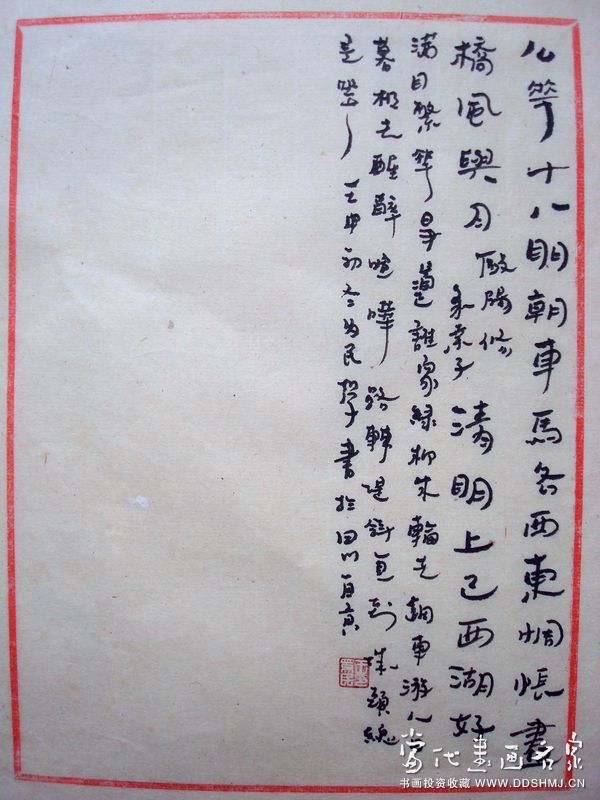 么花十八明朝車馬各西東惆悵畫
橋風與月
歐陽修
采桑子
清明上巳西湖好
滿目繁華爭道誰家綠柳朱輪走鈿車游人
暮相去醒醉喧嘩路轉堤斜直到城頭總
是花壬申初冬為民書於四川自貢
當代書画名家
书画投资收藏 WWW.DDSHMJ.COM